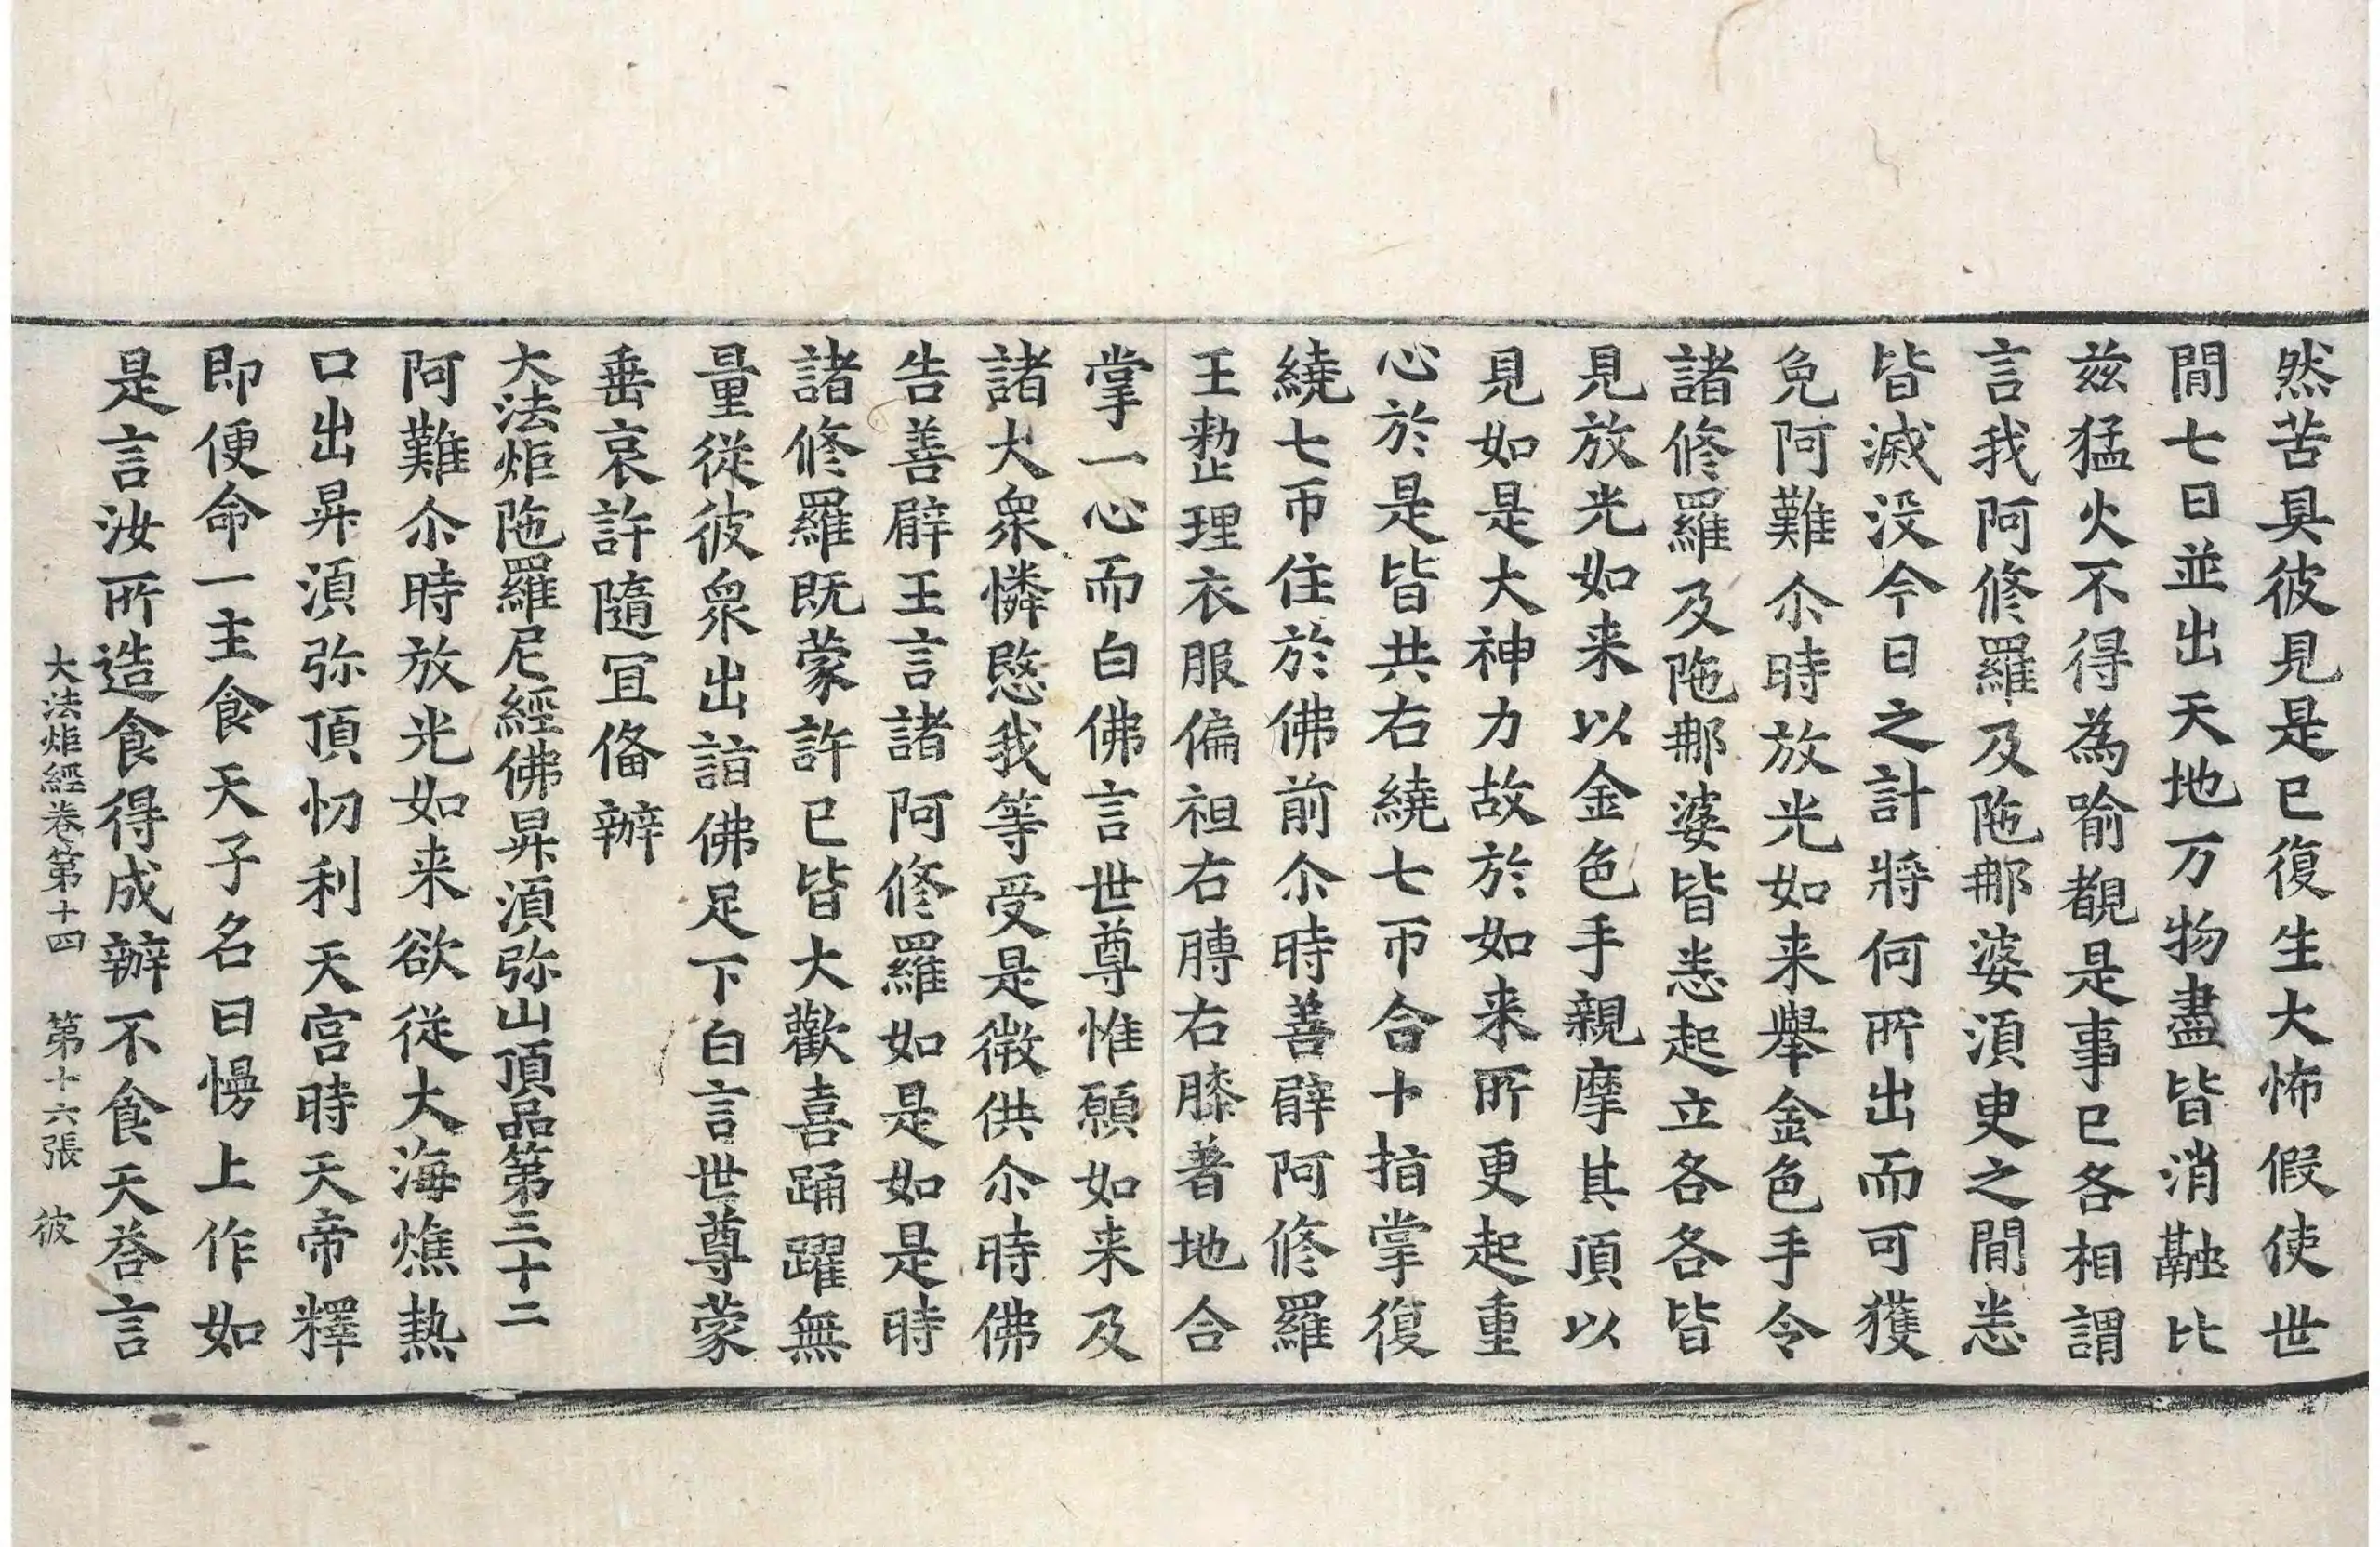 然苦具彼見是已復生大怖假使世
間七日並出天地万物盡皆消融比
兹猛火不得為喻覩是事已各相謂
言我阿修羅及陁郍婆湏臾之間悉
皆滅没今日之計將何所出而可獲
免阿難尒時放光如来舉金色手令
諸修羅及陁郍婆皆悉起立各各皆
見放光如来以金色手親摩其頂以
見如是大神力故於如来所更起重
心於是皆共右繞七帀合十指掌復
繞七帀住於佛前尒時善臂阿修羅
王整理衣服偏袒右膞右膝著地合
掌一心而白佛言世尊惟願如来及
諸大衆憐愍我等受是微供尒時佛
告善臂王言諸阿修羅如是如是時
諸修羅既蒙許已皆大歡喜踊躍無
量從彼衆出詣佛足下白言世尊蒙
垂哀許隨冝俻辦
大法炬陁羅尼經佛昇湏弥山頂品第三十二
阿難尒時放光如来欲從大海燋熱
口出昇湏弥頂忉利天宫時天帝釋
即便命一主食天子名曰慢上作如
是言汝所造食得成辦不食天荅言
大法炬經卷第十四 第十六張 彼